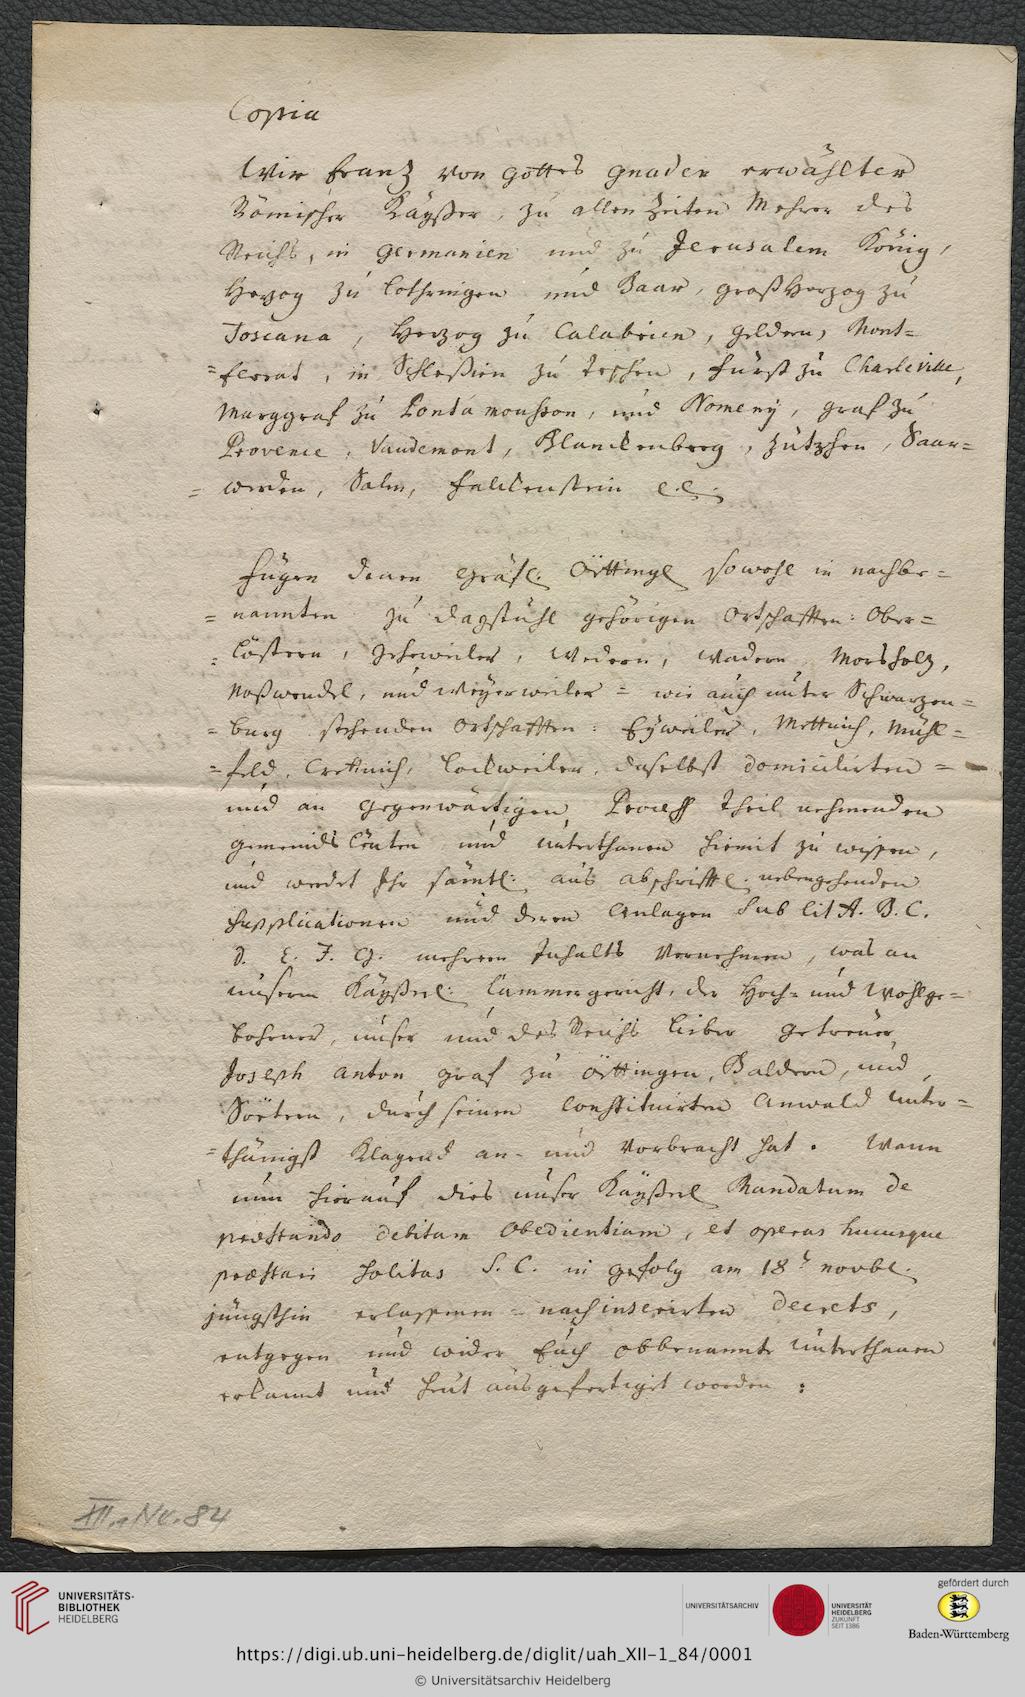 Copia
Wir Frantz von Gottes gnaden erwählter
Römischer Kaÿßer, zu allen Zeiten Mehrer des
Reichs, in Germanien und zu Jerusalem König,
Hertzog zu Lothringen und Baar, großhertzog zu
Toscana, Hertzog zu Calabrien, Geldern, Mont=
=ferrat, in Schleßien zu Teschen, Fürst zu Charleville,
Marggraf zu Pontamousson, und Nomenÿ, graf zu
Provence, Vaudemont, Blanckenberg, Zütphen, Saar=
=werden, Salm, Falckenstein
fügen denen gräfl. Öttingl sowohl in nachbe=
=nannten zu Dagstuhl gehörigen Ortschafften: Ober=
=Löstern, Geheweiler, Wedern, Wadern, Morsholtz,
Noßwendel, und Weÿerweiler = wie auch unter Schwarzen=
=burg stehenden Ortschafften: Eÿweiler, Mettnich, Mühl=
=feld, Crettnich, Lockweiler, daselbst domicilirten =
und an gegenwärtigen Process theil nehmenden
gemeinds Leuten und unterthanen hiemit zu wissen,
und werdet Ihr sämtl. aus abschrifftl. nebengehenden
supplicationen und deren Anlagen sub lit A. B. C.
D. E. F. G. mehrern Inhalts vernehmen, was an
unserm Kaÿßerl. Cammergericht, der Hoch= und Wohlge=
bohrner, unser und des Reichs lieber getreuer
Joseph Anton graf zu Öttingen, Baldern, und
Söetern, durch seinen constituirten Anwald unter=
=thänigst klagend an- und vorbracht hat. Wann
nun hierauf dies unser Kaÿßerl Mandatum de
præstando debitam obedientiam, et operas hucusque
præstari solitas S. C. in gefolg am 18t novbr.
jüngsthin erlassenen = nachinserirten Decrets,
entgegen und wider Euch obbenannte Unterthanen
erkannt und heut ausgefertiget worden:
XII,1 Nr. 84
UNIVERSITÄTS-
BIBLIOTHEK
HEIDELBERG
UNIVERSITÄTSARCHIV
UNIVERSITÄT
HEIDELBERG
ZUKUNFT
SEIT 1386
gefördert durch
Baden-Württemberg
https://digi.ub.uni-heidelberg.de/diglit/uah_XII-1_84/0001
© Universitätsarchiv Heidelberg